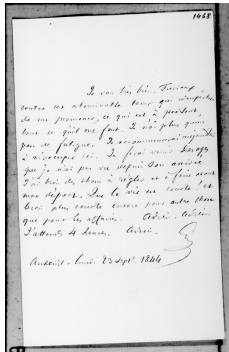 1468
Je vais très bien. Furieux
contre cet abominable temps qui m'empêche
de me promener, ce qui est à présent
tout ce qu'il me faut. Je n'ai plus qu'un
peu de fatigue. Je recommencerai aujourd'hui
à m'occuper ici. Je ferai venir
que je n'ai pas vu depuis son arrivée.
J'ai bien des choses à régler et à finir avant
mon départ. Que la vie est courte ! et
bien plus courte encore pour autre chose
que pour les affaires. Adieu. Adieu.
J'attends 4 heures. Adieu.
G
Auteuil - Lundi 23 Sept. 1844